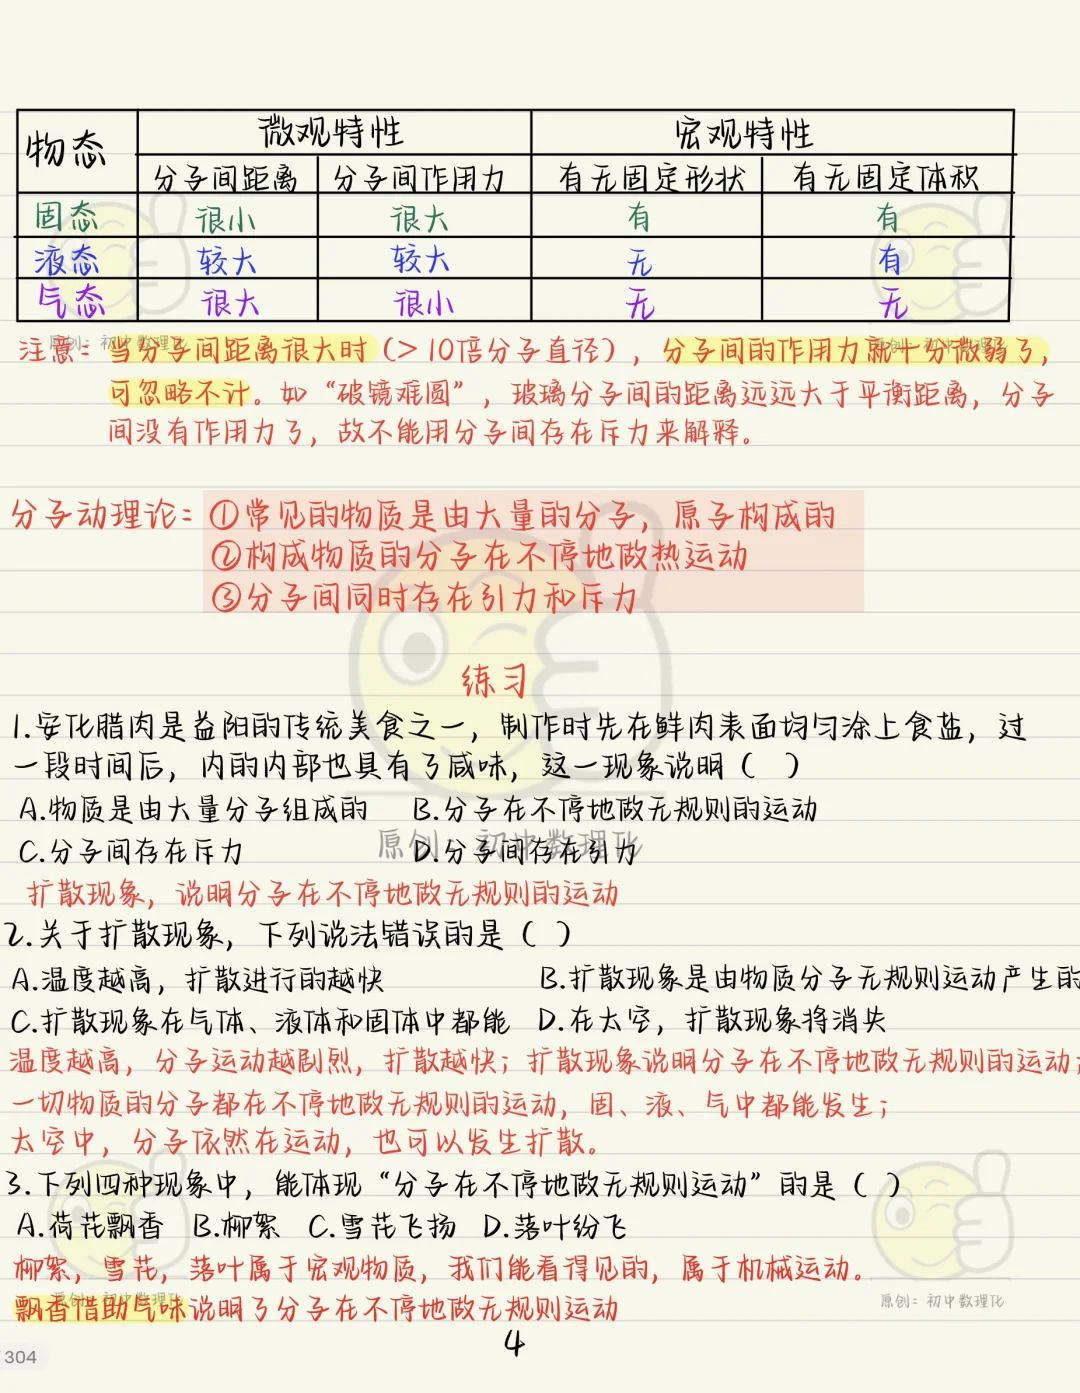 物态 微观特性 宏观特性
分子间距离 分子间作用力 有无固定形状 有无固定体积
固态 很小 很大 有 有
液态 较大 较大 无 有
气态 很大 很小 无 无
注意：当分子间距离很大时（>10倍分子直径），分子间的作用力就十分微弱了，
可忽略不计。如“破镜难圆”，玻璃分子间的距离远远大于平衡距离，分子
间没有作用力了，故不能用分子间存在斥力来解释。
分子动理论：①常见的物质是由大量的分子，原子构成的
②构成物质的分子在不停地做热运动
③分子间同时存在引力和斥力
练习
1.安化腊肉是益阳的传统美食之一，制作时先在鲜肉表面均匀涂上食盐，过
一段时间后，内的内部也具有了咸味，这一现象说明（ ）
A.物质是由大量分子组成的 B.分子在不停地做无规则的运动
C.分子间存在斥力 D.分子间存在引力
扩散现象，说明分子在不停地做无规则的运动
2.关于扩散现象，下列说法错误的是（ ）
A.温度越高，扩散进行的越快 B.扩散现象是由物质分子无规则运动产生的
C.扩散现象在气体、液体和固体中都能 D.在太空，扩散现象将消失
温度越高，分子运动越剧烈，扩散越快；扩散现象说明分子在不停地做无规则的运动；
一切物质的分子都在不停地做无规则的运动，固、液、气中都能发生；
太空中，分子依然在运动，也可以发生扩散。
3.下列四种现象中，能体现“分子在不停地做无规则运动”的是（ ）
A.荷花飘香 B.柳絮 C.雪花飞扬 D.落叶纷飞
柳絮，雪花，落叶属于宏观物质，我们能看得见的，属于机械运动。
飘香借助气味说明了分子在不停地做无规则运动
原创：初中数理化
原创：初中数理化
原创：初中数理化
原创：初中数理化
原创：初中数理化
4
304